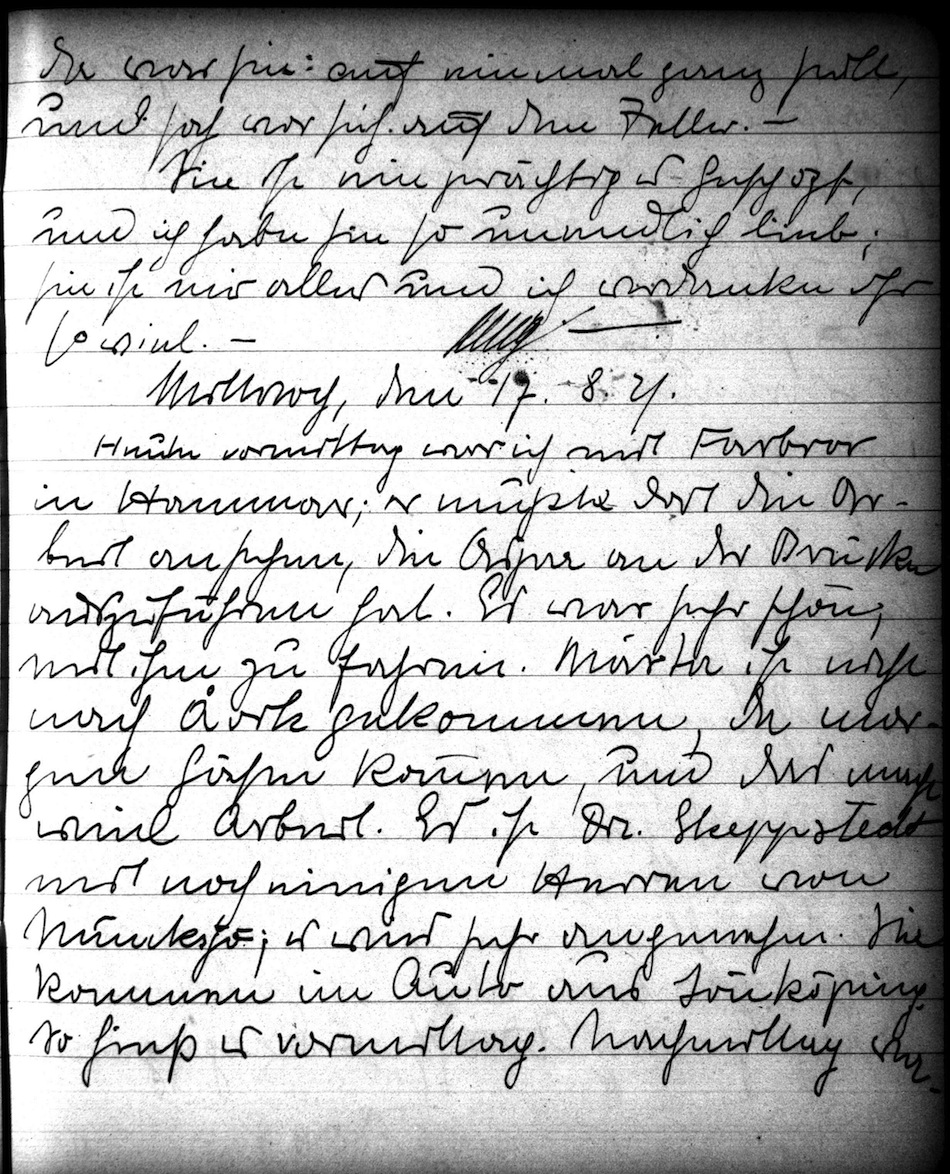 da war sie auf einmal ganz still,
und sah vor sich auf den Teller. —
Sie ist ein prächtiges Geschöpf,
und ich habe sie so unendlich lieb;
sie ist mir alles und ich verdanke ihr
so viel. —
Mittwoch, den 17. 8. 21.
Heute vormittag war ich mit Farbror
in Hammar; er mußte dort die Ar-
beit ansehen, die an der Brücke
auszuführen hat. Es war sehr schön,
mit ihm zu fahren. Märta ist nicht
nach gekommen, da mor-
gen Gäste kommen, und das macht
viel Arbeit. Es ist Dr. Skeppstedt
mit noch einigen Herren von
Munksjö; es wird sehr angenehm. Sie
kommen im Auto aus Jönköping.
So hieß es vormittag. Nachmittag wur-